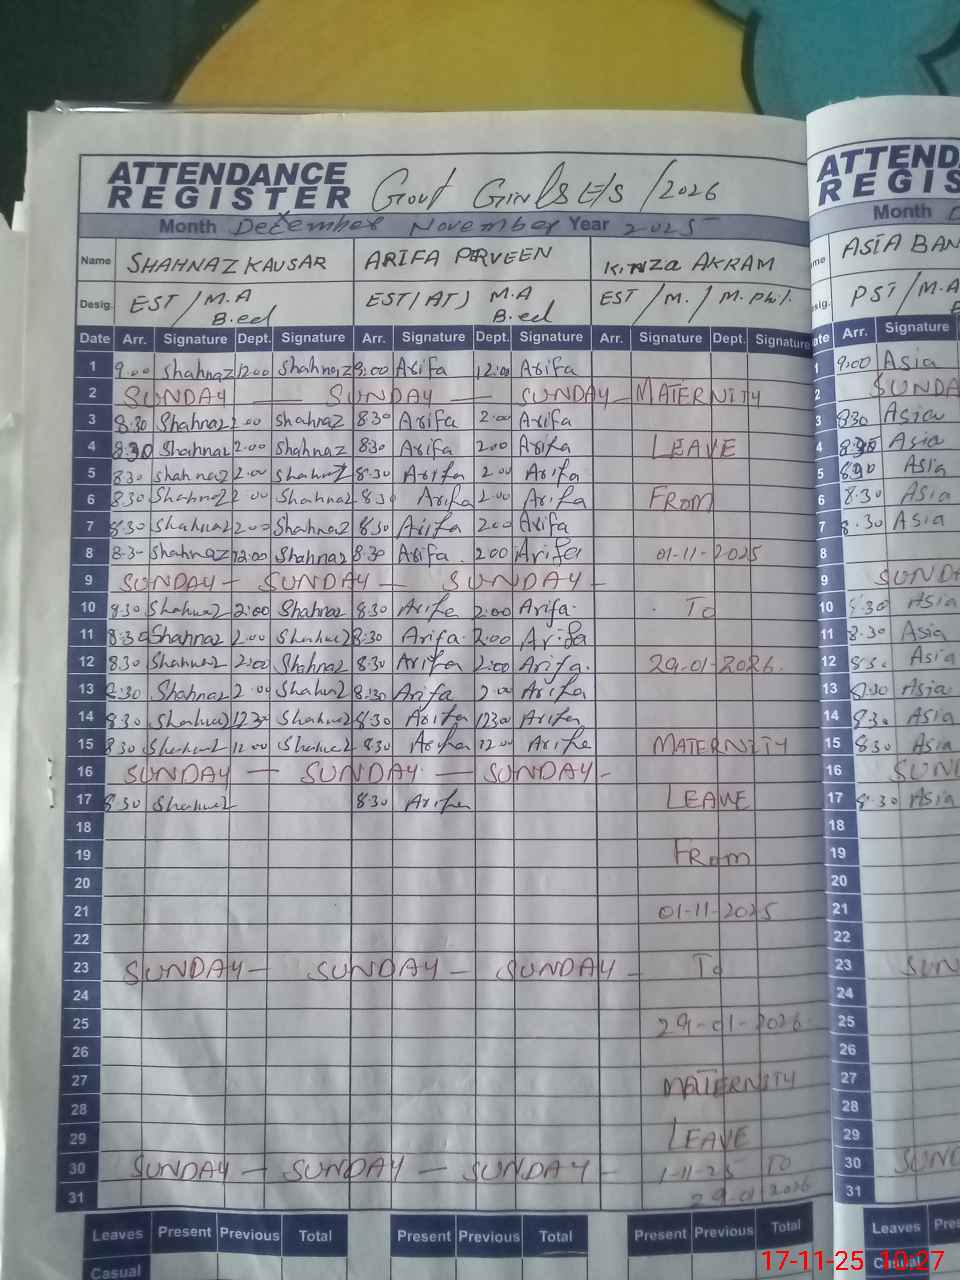 ATTENDANCE
REGISTER Govt Girls E/S /2026
Month December November Year 2025
Name SHAHNAZ KAUSAR ARIFA PRVEEN KINZA AKRAM
Desig. EST / M.A B.ed EST(AT) M.A B.ed EST / M. / M.Phil.
Date Arr. Signature Dept. Signature Arr. Signature Dept. Signature Arr. Signature Dept. Signature
1 9:00 Shahnaz 12:00 Shahnaz 9:00 Arifa 12:00 Arifa
2 SUNDAY — SUNDAY — SUNDAY — MATERNITY
3 8:30 Shahnaz 2:00 Shahnaz 8:30 Arifa 2:00 Arifa
4 8:30 Shahnaz 2:00 Shahnaz 8:30 Arifa 2:00 Arifa LEAVE
5 8:30 Shahnaz 2:00 Shahnaz 8:30 Arifa 2:00 Arifa
6 8:30 Shahnaz 2:00 Shahnaz 8:30 Arifa 2:00 Arifa FROM
7 8:30 Shahnaz 2:00 Shahnaz 8:30 Arifa 2:00 Arifa
8 8:30 Shahnaz 12:00 Shahnaz 8:30 Arifa 2:00 Arifa 01-11-2025
9 SUNDAY — SUNDAY — SUNDAY —
10 8:30 Shahnaz 2:00 Shahnaz 8:30 Arifa 2:00 Arifa To
11 8:30 Shahnaz 2:00 Shahnaz 8:30 Arifa 2:00 Arifa
12 8:30 Shahnaz 2:00 Shahnaz 8:30 Arifa 2:00 Arifa 29-01-2026
13 8:30 Shahnaz 2:00 Shahnaz 8:30 Arifa 2:00 Arifa
14 8:30 Shahnaz 12:30 Shahnaz 8:30 Arifa 12:30 Arifa
15 8:30 Shahnaz 12:00 Shahnaz 8:30 Arifa 12:00 Arifa MATERNITY
16 SUNDAY — SUNDAY — SUNDAY —
17 8:30 Shahnaz 8:30 Arifa LEAVE
18
19 FROM
20
21 01-11-2025
22
23 SUNDAY — SUNDAY — SUNDAY — To
24
25 29-01-2026
26
27 MATERNITY
28
29 LEAVE
30 SUNDAY — SUNDAY — SUNDAY — 1-11-25 TO
31 29-01-2026
Leaves Present Previous Total Present Previous Total Present Previous Total
Casual
ATTEND
REGIS
Month
ASIA BAN
PST / M.A
Arr. Signature
1 9:00 Asia
2 SUNDA
3 8:30 Asia
4 8:30 Asia
5 8:30 Asia
6 8:30 Asia
7 8:30 Asia
8
9 SUNDA
10 8:30 Asia
11 8:30 Asia
12 8:30 Asia
13 8:30 Asia
14 8:30 Asia
15 8:30 Asia
16 SUN
17 8:30 Asia
18
19
20
21
22
23 SUN
24
25
26
27
28
29
30 SUN
31
Leaves Pre
Casual
17-11-25 10:27